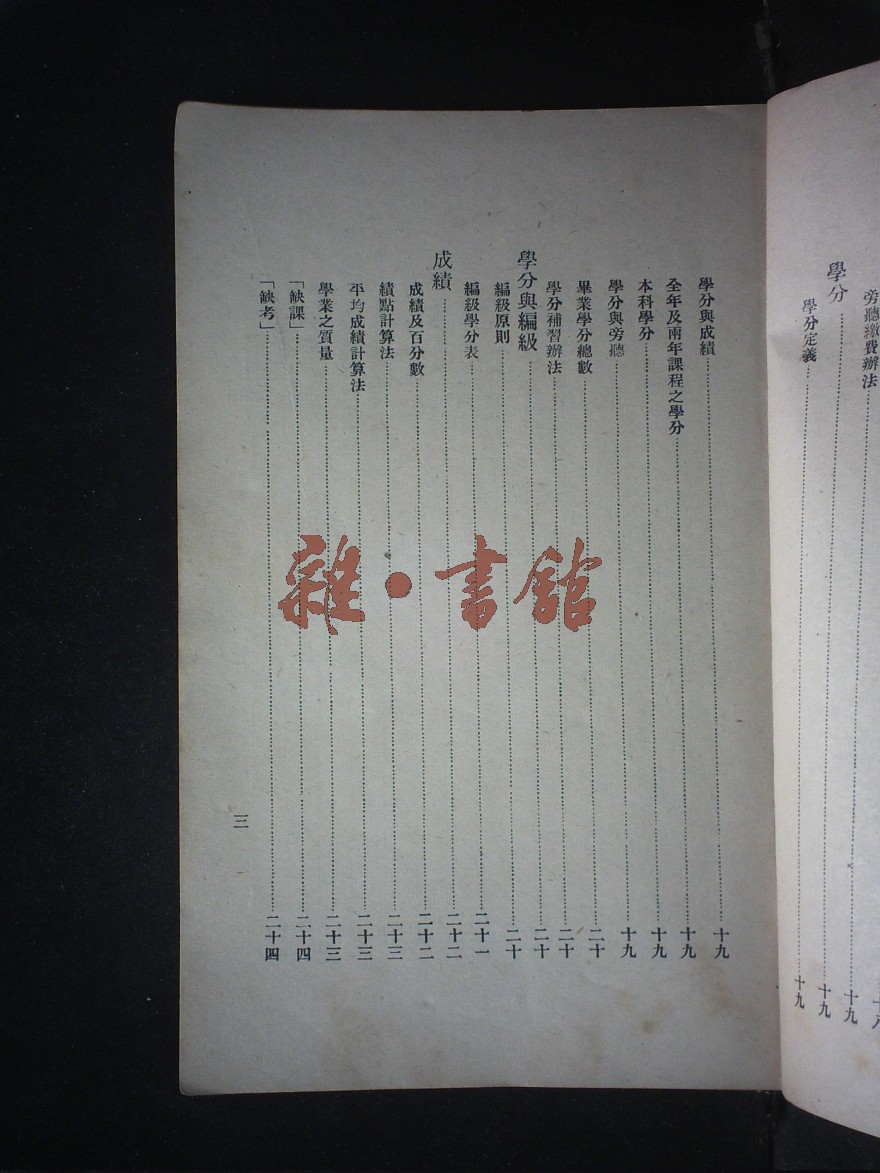 旁聽繳費辦法……十八
學分……十九
學分定義……十九
十九
學分與成績……十九
全年及兩年課程之學分……十九
本科學分……十九
學分與旁聽……十九
畢業學分總數……二十
學分補習辦法……二十
學分與編級……二十
編級原則……二十
編級學分表……二十一
成績……二十二
成績及百分數……二十二
績點計算法……二十三
平均成績計算法……二十三
學業之質量……二十三
「缺課」……二十四
「缺考」……二十四
三
雜·書館